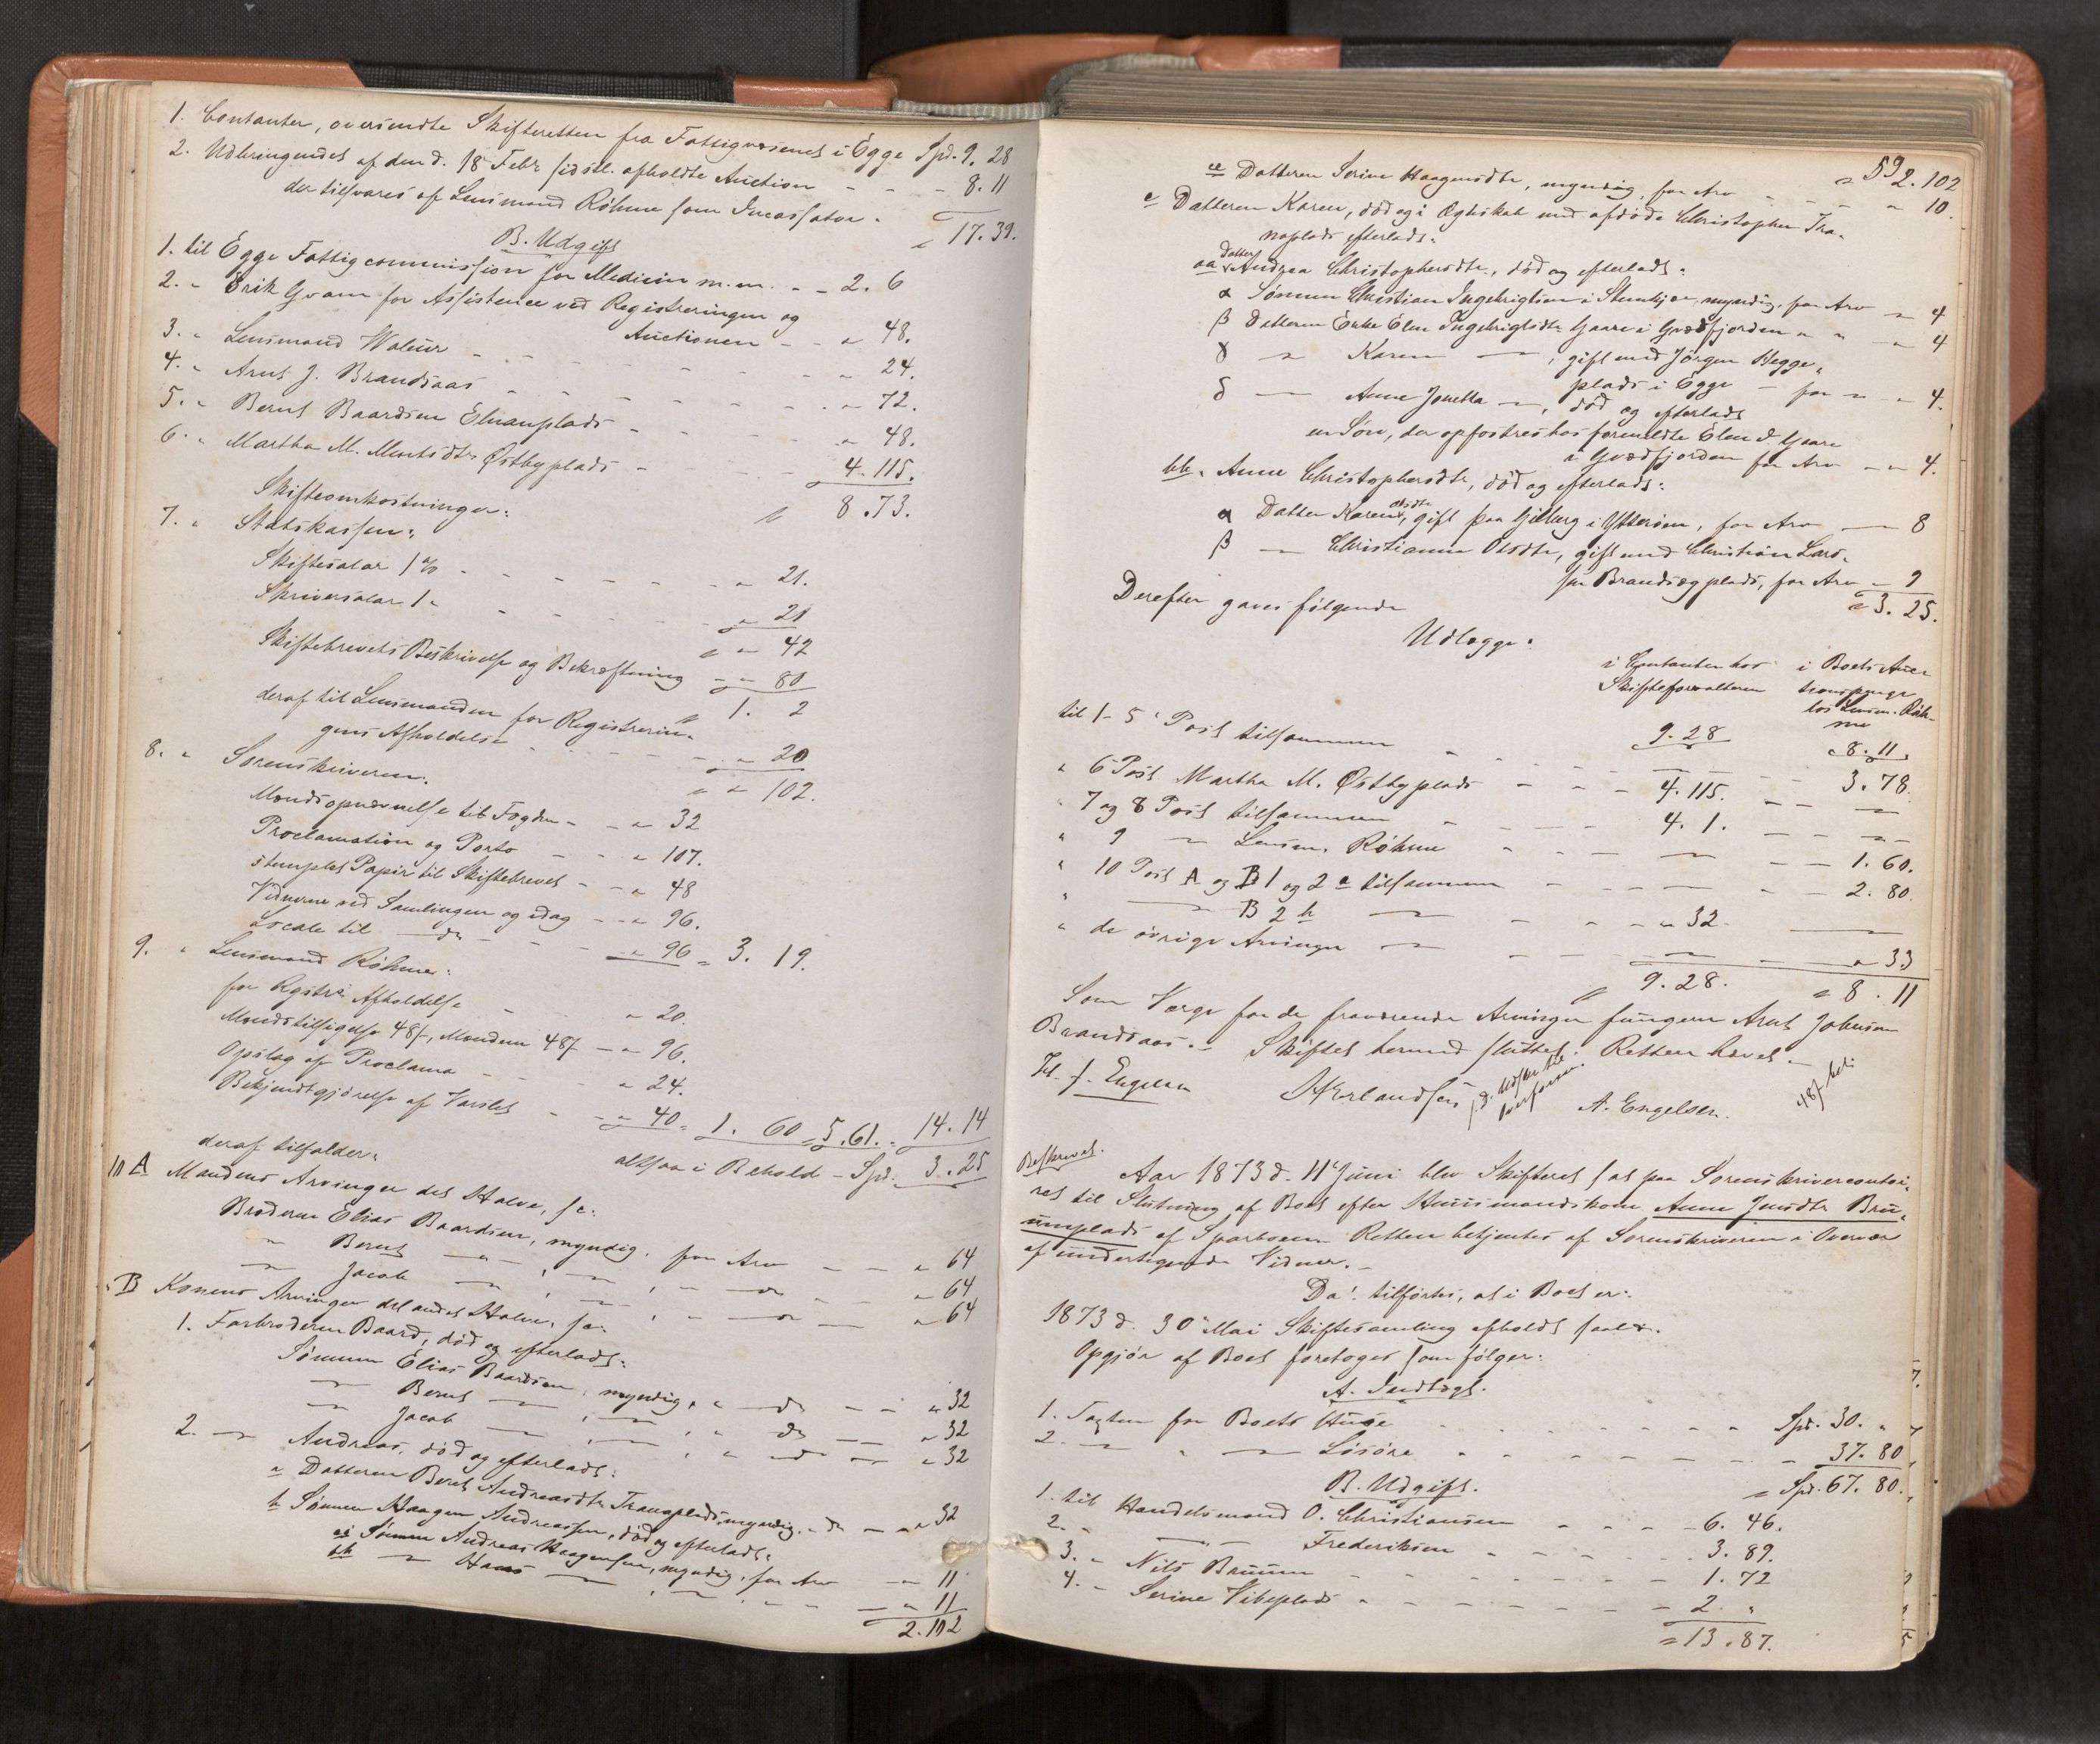 1. Contanter, oversendte Skifteretten fra Fattigvæsenet i Egge Spd. 9. 28
2. Udbringendet af den d. 18 Febr sidstl. afholdte Auction - - - 8. 11
der tilsvares af Lensmand Röhme som Incassator. 17. 39.
B. Udgift
1. til Egge Fattigcommission for Medicin m. m. - - 2. 6
2. " Erik Qvam for Assistence ved Registreringen og
Auctionen - - " 48.
3. " Lensmand Walseur - - - " 24.
4. " Arnt J. Brandsaas - - - " 72.
5. " Bernt Baardsen Elnanplads - - - " 48.
6. " Martha M. Mentsdtr Östbyplads - - - 4. 115.
8. 73.
Skifteomkostninger:
7. " Statskassen:
Skiftesalar 1 % - - - " 21.
Skriversalar 1 " - - - " 21
" 42
Skiftebrevets Beskrivelse og Bekræftning - " 80
1. 2
deraf til Lensmanden for Registrerin-
gens Afholdelse - - - " 20
" 102.
8. " Sorenskriveren:
Mandsopnævnelse til Fogden - - " 32
Proclamation og Porto - - " 107.
stemplet Papir til Skiftebrevet - - " 48
Vidnerne ved Samlingen og idag - - " 96.
Locale til — do - - - " 96 = 3. 19.
9. " Lensmand Röhme:
for Regstrs Afholdelse - - " 20.
Mændstilsigelse 48 ſ, Mændene 48 ſ - " 96.
Opslag af Proclama - - - " 24.
Bekjendtgjörelse af Varslet - - " 40 = 1. 60 = 5. 61. = 14. 14
altsaa i Behold - Spd. 3. 25
deraf tilfalder:
10 A Mandens Arvinger det Halve, sc:
Broderen Elias Baardsen, myndig, for Arv - - " 64
— Bernt — , — , — do - - " 64
— Jacob — , — , — do - - " 64
" B Konens Arvinger det andet Halve, sc:
1. Farbroderen Baard, död og efterladt:
Sönnen Elias Baardsen, myndig, " do - - " 32
— Bernt — , — , " do - - " 32
— Jacob — , — , " do - - " 32
2. — Andreas, död og efterladt:
a Datteren Beret Andreasdtr Tranaplads, myndig, - do - - " 32
b Sönnen Haagen Andreassen, död og efterladt:
aa Sönnen Andreas Haagensen, myndig, for Arv - " 11
bb — Hans — , — , " " - " 11
2. 102
592. 102
cc Datteren Serine Haagensdtr, myndig, for Arv - - " 10.
c Datteren Karen, död og i Ægteskab med afdöde Christopher Tra-
naplads efterladt:
aa Datter Andrea Christophersdtr, död og efterladt:
α Sönnen Christian Ingebrigtsen i Stenkjær, myndig, for Arv - 4
β Datteren Enke Elen Ingebrigtsdtr Gaare i Qvedfjorden " " - " 4
γ — Karen — , gift med Jörgen Hegge-
plads i Egge - for " - 4.
δ — Anne Jonetta —, död og efterladt
en Sön, der opfostres hos formeldte Elen d. Gaare
i Qvedfjorden for Arv - " 4.
bb. Anne Christophersdtr, död og efterladt:
α Datter Karen Olsdtr, gift paa Gjelberg i Ytteröen, for Arv - 8
β — Christianna Olsdtr, gift med Christian Lars-
sen Brandsegplads, for Arv - 9
" 3. 25.
Derefter gaves fölgende
Udlægge:
i Contanter hos
Skifteforvalteren
i Boets Auc-
tionspenge
hos Lensm. Röh-
me
9. 28
8. 11.
til 1 - 5te Post tilsammen - - - 3. 78.
" 6 Post Martha M. Östbyplads - - - 4. 115. - - —
" 7 og 8 Post tilsammen - - - 4. 1. - - —
" 9 — Lensm. Röhme - - - — - - 1. 60.
" 10 Post A og B 1 og 2 a tilsammen - - - 2. 80.
" — B 2 b — - - - " 32. —
" de övrige Arvinger — - - - — " 33
9. 28. " 8. 11
Som Værge for de fraværende Arvinger fungerer Arnt Johnsen
Brandsaas. - Skiftet hermed sluttet. Retten hævet. -
A. Engelsen.
Beskrevet.
Aar 1873 d. 11te Juni blev Skifteret sat paa Sorenskrivercontoi-
ret til Slutning af Boet efter Huusmandskone Anne Jensdtr Bru-
umplads af Sparboen. Retten betjentes af Sorenskriveren i Overvær
af undertegnede Vidner. -
Da! tilförtes, at i Boet er:
1873 d. 30te Mai Skiftesamling afholdt saal.
Opgjör af Boet foretoges som fölger:
A. Indtægt.
1. Taxten for Boets Huse - - - Spd. 30. "
2. — " — Lösöre - - - 37. 80
Spd. 67. 80.
B. Udgift.
1. til Handelsmand O. Christiansen - - - 6. 46.
2. " — " — Frederiksen - - - 3. 89.
3. " Nils Bruum - - - 1. 72
4. " Serine Vibeplads - - - 2. "
= 13. 87.